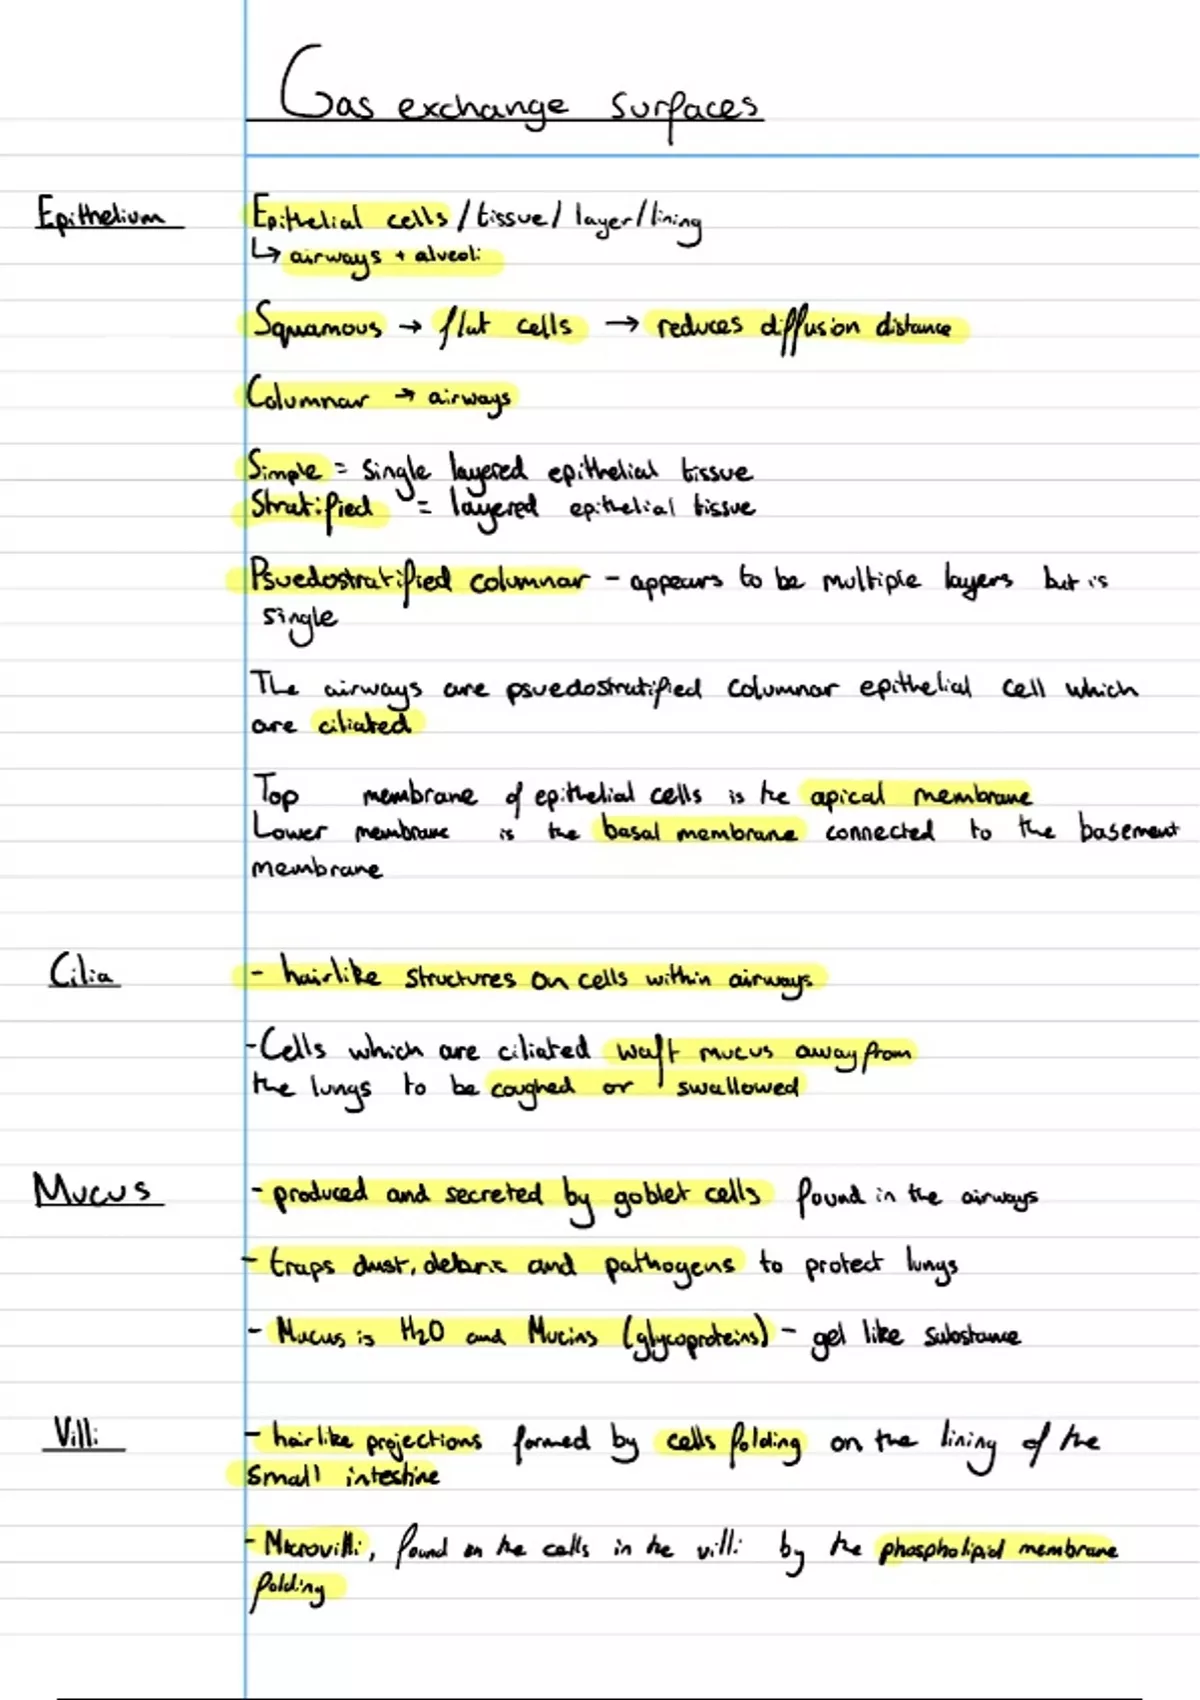 Gas exchange surfaces
Epithelium
Epithelial cells / tissue / layer / lining
↳ airways + alveoli
Squamous → flat cells → reduces diffusion distance
Columnar → airways
Simple = single layered epithelial tissue
Stratified = layered epithelial tissue
Psuedostratified columnar - appears to be multiple layers but is
single
The airways are psuedostratified columnar epithelial cell which
are ciliated
Top membrane of epithelial cells is the apical membrane
Lower membrane is the basal membrane connected to the basement
membrane
Cilia
- hairlike structures on cells within airways
- Cells which are ciliated waft mucus away from
the lungs to be coughed or swallowed
Mucus
- produced and secreted by goblet cells found in the airways
- traps dust, debris and pathogens to protect lungs
- Mucus is H2O and Mucins (glycoproteins) - gel like substance
Villi
- hairlike projections formed by cells folding on the lining of the
small intestine
- Microvilli, found on the cells in the villi by the phospholipid membrane
folding